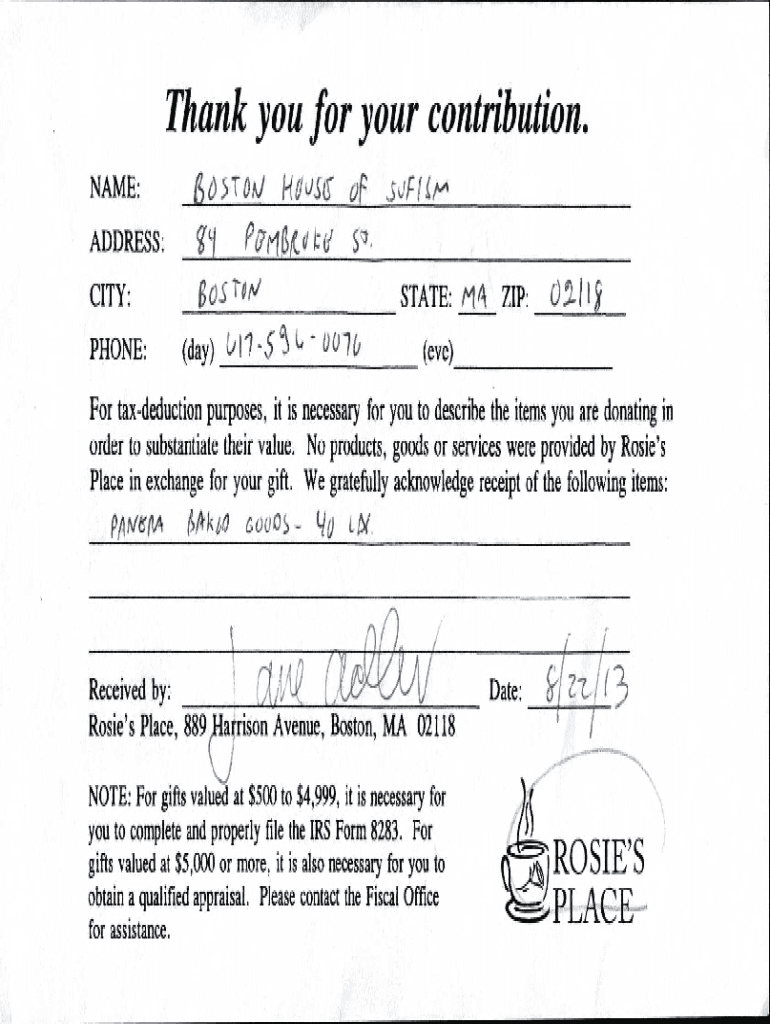 Thank you for your contribution.
NAME: BOSTON HOUSE OF SUFISM
ADDRESS: 84 PEMBROKE ST.
CITY: BOSTON STATE: MA ZIP: 02118
PHONE: (day) 617-596-0076 (eve)
For tax-deduction purposes, it is necessary for you to describe the items you are donating in
order to substantiate their value. No products, goods or services were provided by Rosie's
Place in exchange for your gift. We gratefully acknowledge receipt of the following items:
PANERA BAKED GOODS - 40
Received by: Jane Adler Date: 8/22/13
Rosie's Place, 889 Harrison Avenue, Boston, MA 02118
NOTE: For gifts valued at $500 to $4,999, it is necessary for
you to complete and properly file the IRS Form 8283. For
gifts valued at $5,000 or more, it is also necessary for you to
obtain a qualified appraisal. Please contact the Fiscal Office
for assistance.
ROSIE'S
PLACE